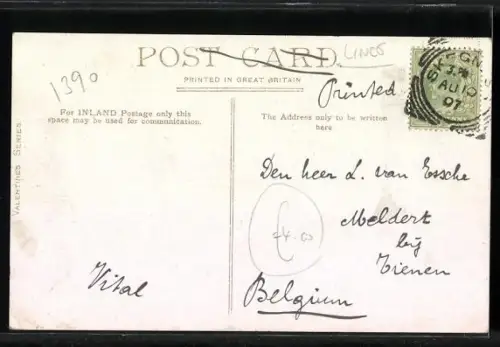 POST CARD.
LINCS
PRINTED IN GREAT BRITAIN
1390
Printed
SKEGN
AU 10
07
For INLAND Postage only this
space may be used for communication.
The Address only to be written
here
VALENTINES SERIES
Den heer L. van Essche
Meldert
bij
Tienen
Belgium
£4.00
Vital